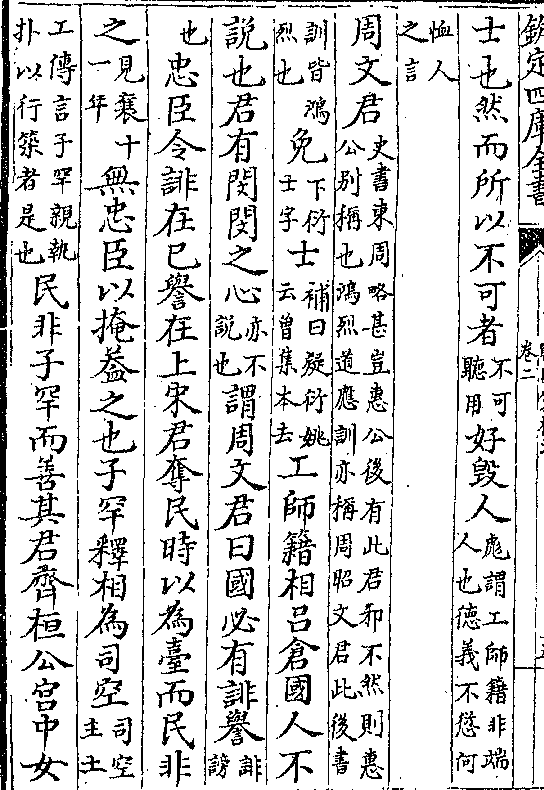 欽定四庫全書
卷二
士也然而所以不可者不可聽用好毀人彪謂工師籍非端人也德義不愆何
恤人之言
周文君史書東周略甚豈惠公後有此君邪不然則惠公別稱也鴻烈道應訓亦稱周昭文君此後書
訓皆鴻烈也免下衍士字士補曰疑衍姚云曾集本去工師籍相吕倉國人不
說也君有閔閔之心亦不說也謂周文君曰國必有誹譽誹謗
也忠臣令誹在已譽在上宋君奪民時以為臺而民非
之見襄十一年無忠臣以掩葢之也子罕釋相為司空司空主土
工傳言子罕親執扑以行築者是也民非子罕而善其君齊桓公宫中女